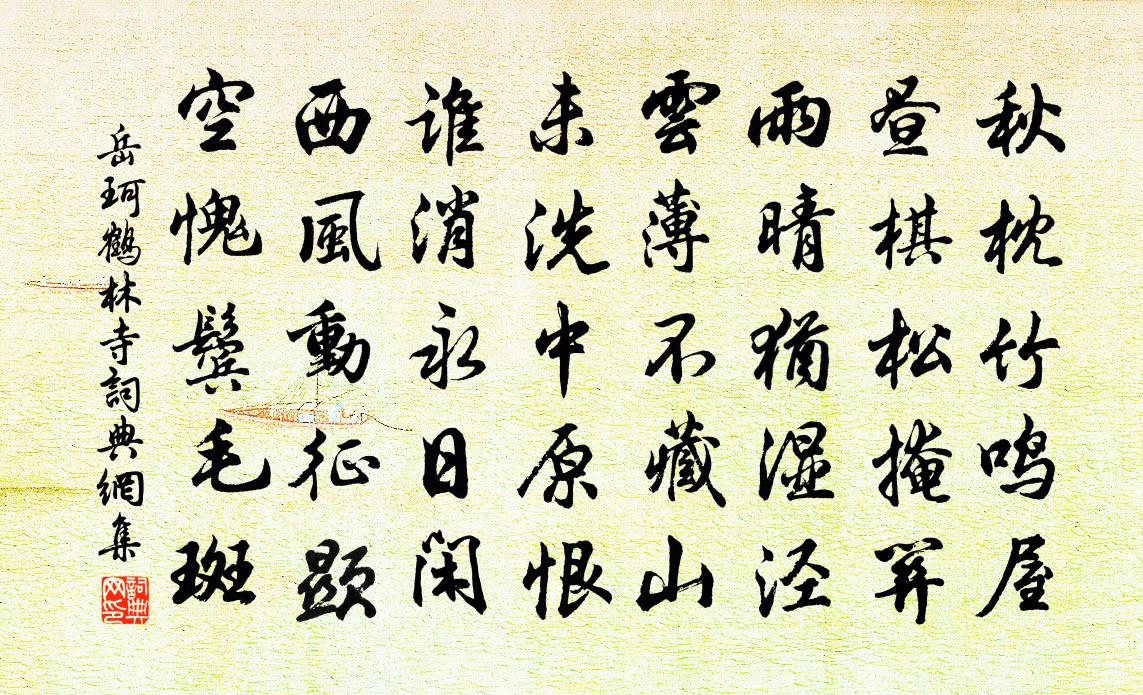 秋枕竹鸣屋
昼棋松掩关
雨晴猶湿泾
雲薄不藏山
未洗中原恨
谁消永日闲
西風動征顕
空愧鬓毛斑
岳珂鶴林寺詞典網集
詞典
网印